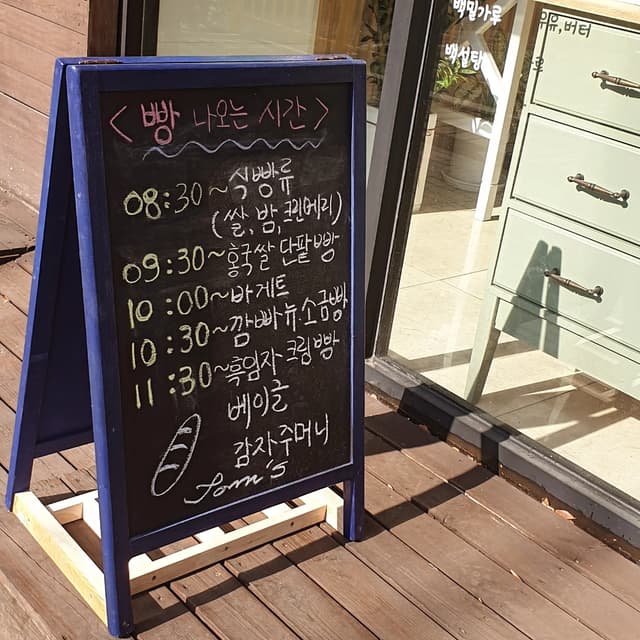 < 빵 나오는 시간 >
08:30~식빵류
(쌀, 밤, 크린베리)
09:30~홍국쌀 단팥빵
10:00~바게트
10:30~깜빠뉴, 소금빵
11:30~흑임자 크림빵
베이글
감자주머니
Tom's
백밀가루
백설탕
우유, 버터